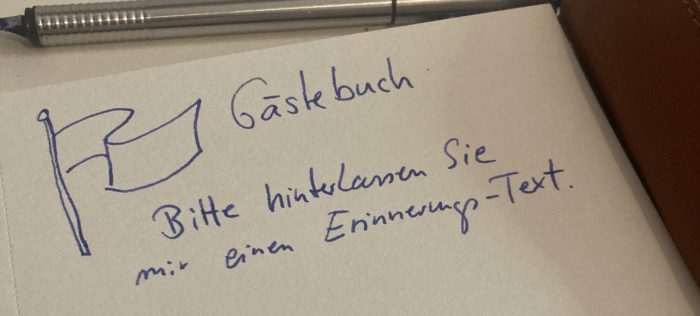 Gästebuch
Bitte hinterlassen Sie
mir einen Erinnerungs-Text.